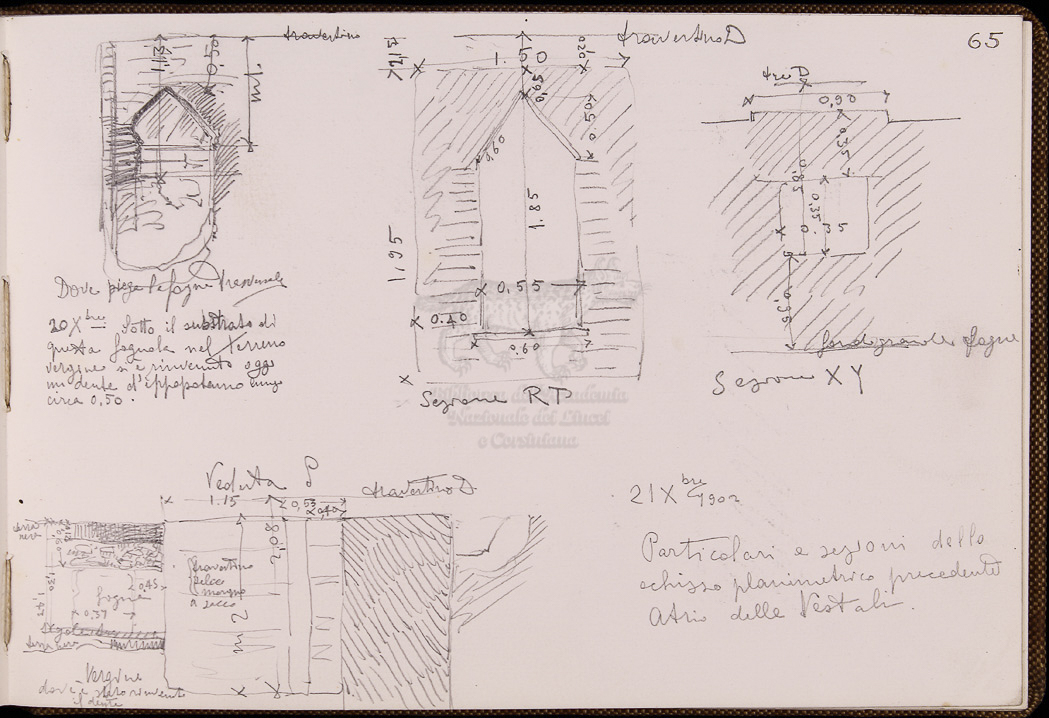 65
travertino
1.13
0.50
1 m
Dove piega la fogna trasversale
20 Xbre Sotto il substrato di
questa fognola nel terreno
vergine si è rinvenuto oggi
un dente d'ippopotamo lungo
circa 0,50.
travertino D
1.50
0,20
0,50
0,60
1.85
1,95
0.55
0.40
0.60
Sezione RT
trav D
0,90
0,35
0.85
0.35
0,55
fondo grande fogna
Sezione XY
Nazionale dei Lincei
e Corsiniana
Veduta S
travertino D
1.15
0,53
0,40
2,08
m 2
travertino
selce
marmo
a sacco
terra
nera
0,45
fogna
0.37
terra nera
Vergine
dove è stato rinvenuto
il dente
21 Xbre 1902
Particolari e sezioni dello
schizzo planimetrico precedente
Atrio delle Vestali.